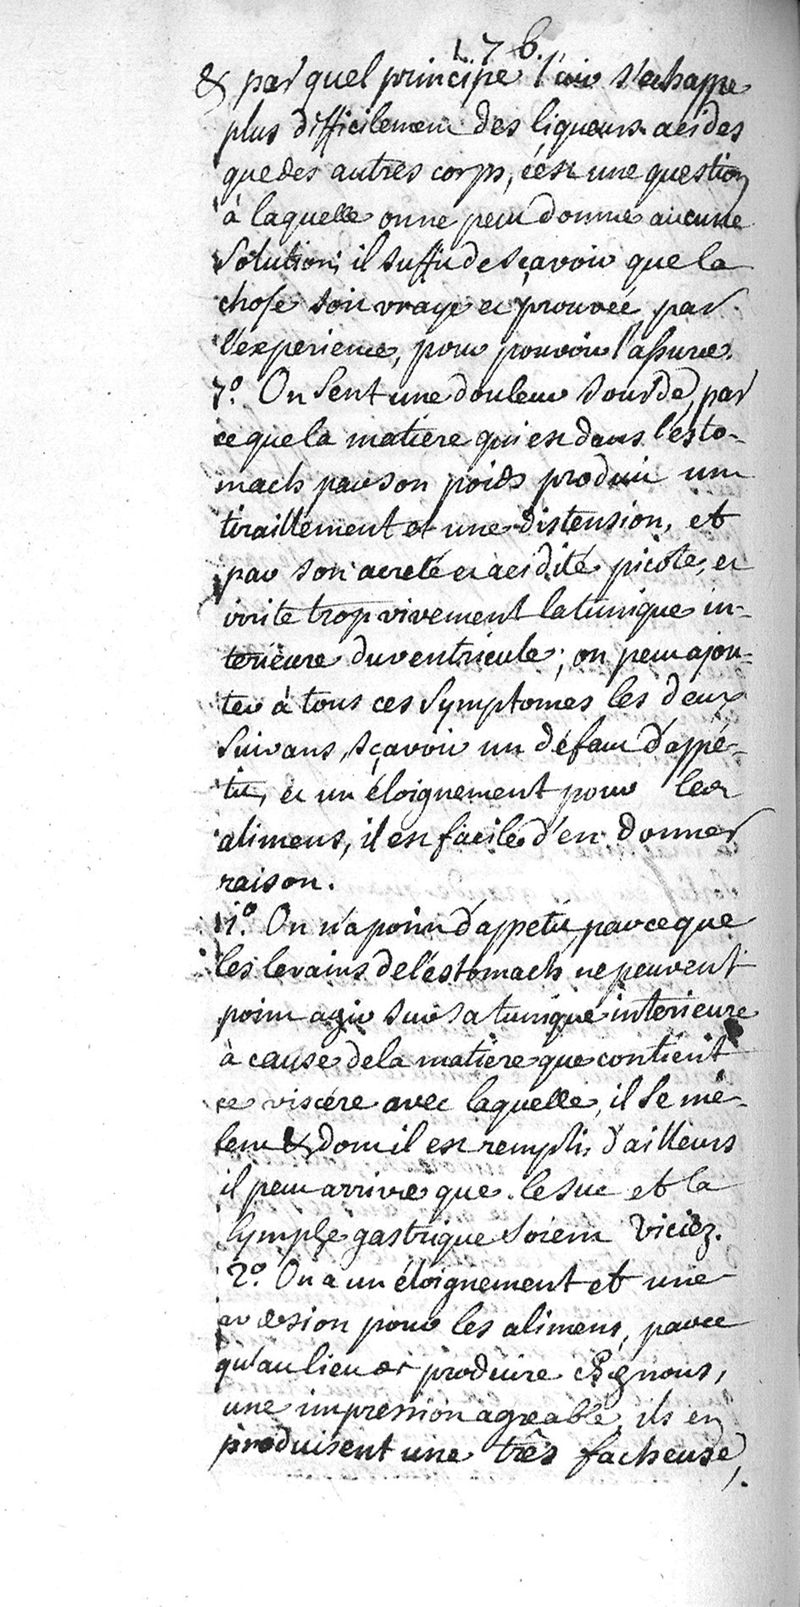 176.
& par quel principe l'air s'echappe
plus difficilement des liqueurs acides
que des autres corps, c'est une question
à laquelle on ne peut donner aucune
Solution; il suffit de sçavoir que la
chose soit vraye et prouvée par
l'experience, pour pouvoir l'assurer.
7.° On Sent une douleur sourde, par
ce que la matiere qui est dans l'esto-
mach par son poids produit un
tiraillement et une distension, et
par son acreté et acidité picote, et
irrite trop vivement la tunique in-
terieure du ventricule; on peut ajou-
ter à tous ces Symptomes les deux
Suivans, sçavoir un défaut d'appé-
tit, et un éloignement pour les
alimens, il est facile d'en donner
raison.
1.° On n'a point d'appetit, parce que
les levains de l'éstomach ne peuvent
point agir sur sa tunique interieure
à cause de la matiere que contient
ce viscére avec laquelle, il se mé-
lent & dont il est rempli, d'ailleurs
il peut arriver que le suc et la
lymphe gastrique soient viciez.
2.° On a un éloignement et une
aversion pour les alimens, parce
qu'au lieu de produire chez nous,
une impression agreable, ils en
produisent une três facheuse,